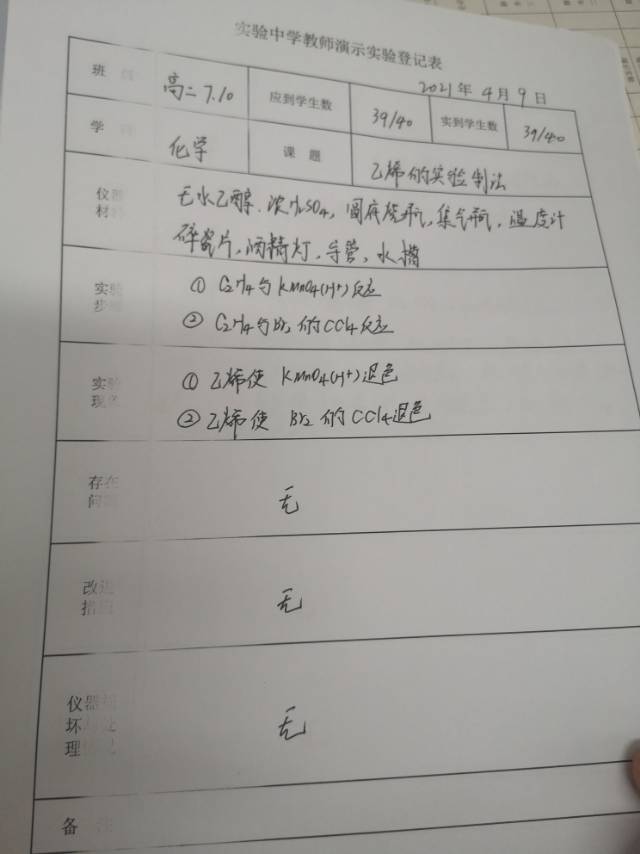 实验中学教师演示实验登记表
2021年4月9日
班 高二7.10 应到学生数 39/40 实到学生数 39/40
学 化学 课题 乙烯的实验制法
仪器 无水乙醇、浓H2SO4, 圆底烧瓶, 集气瓶, 温度计
材 碎瓷片, 酒精灯, 导管, 水槽
实验 ① C2H4与KMnO4(H+)反应
步 ② C2H4与Br2的CCl4反应
实验 ① 乙烯使 KMnO4(H+)退色
现 ② 乙烯使 Br2 的CCl4退色
存在
问 无
改进
措 无
仪器
坏 处 无
理
备 注